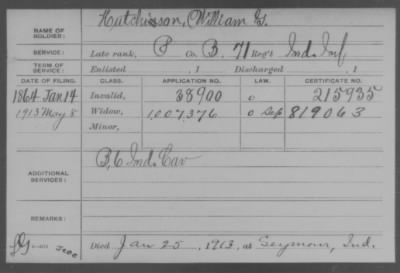 Hutchisson, William G.
NAME OF SOLDIER:
SERVICE: Late rank, P Co. B. 71 Reg't Ind. Inf
TERM OF SERVICE: Enlisted , 1 Discharged , 1
DATE OF FILING. CLASS. APPLICATION NO. LAW. CERTIFICATE NO.
1864 Jan 14 Invalid, 38900 o 215935
1913 May 8 Widow, 1,007,376 o Sep 819063
Minor,
ADDITIONAL SERVICES: B, 6 Ind. Cav
REMARKS:
Died Jan 25, 1913, at Seymour, Ind.